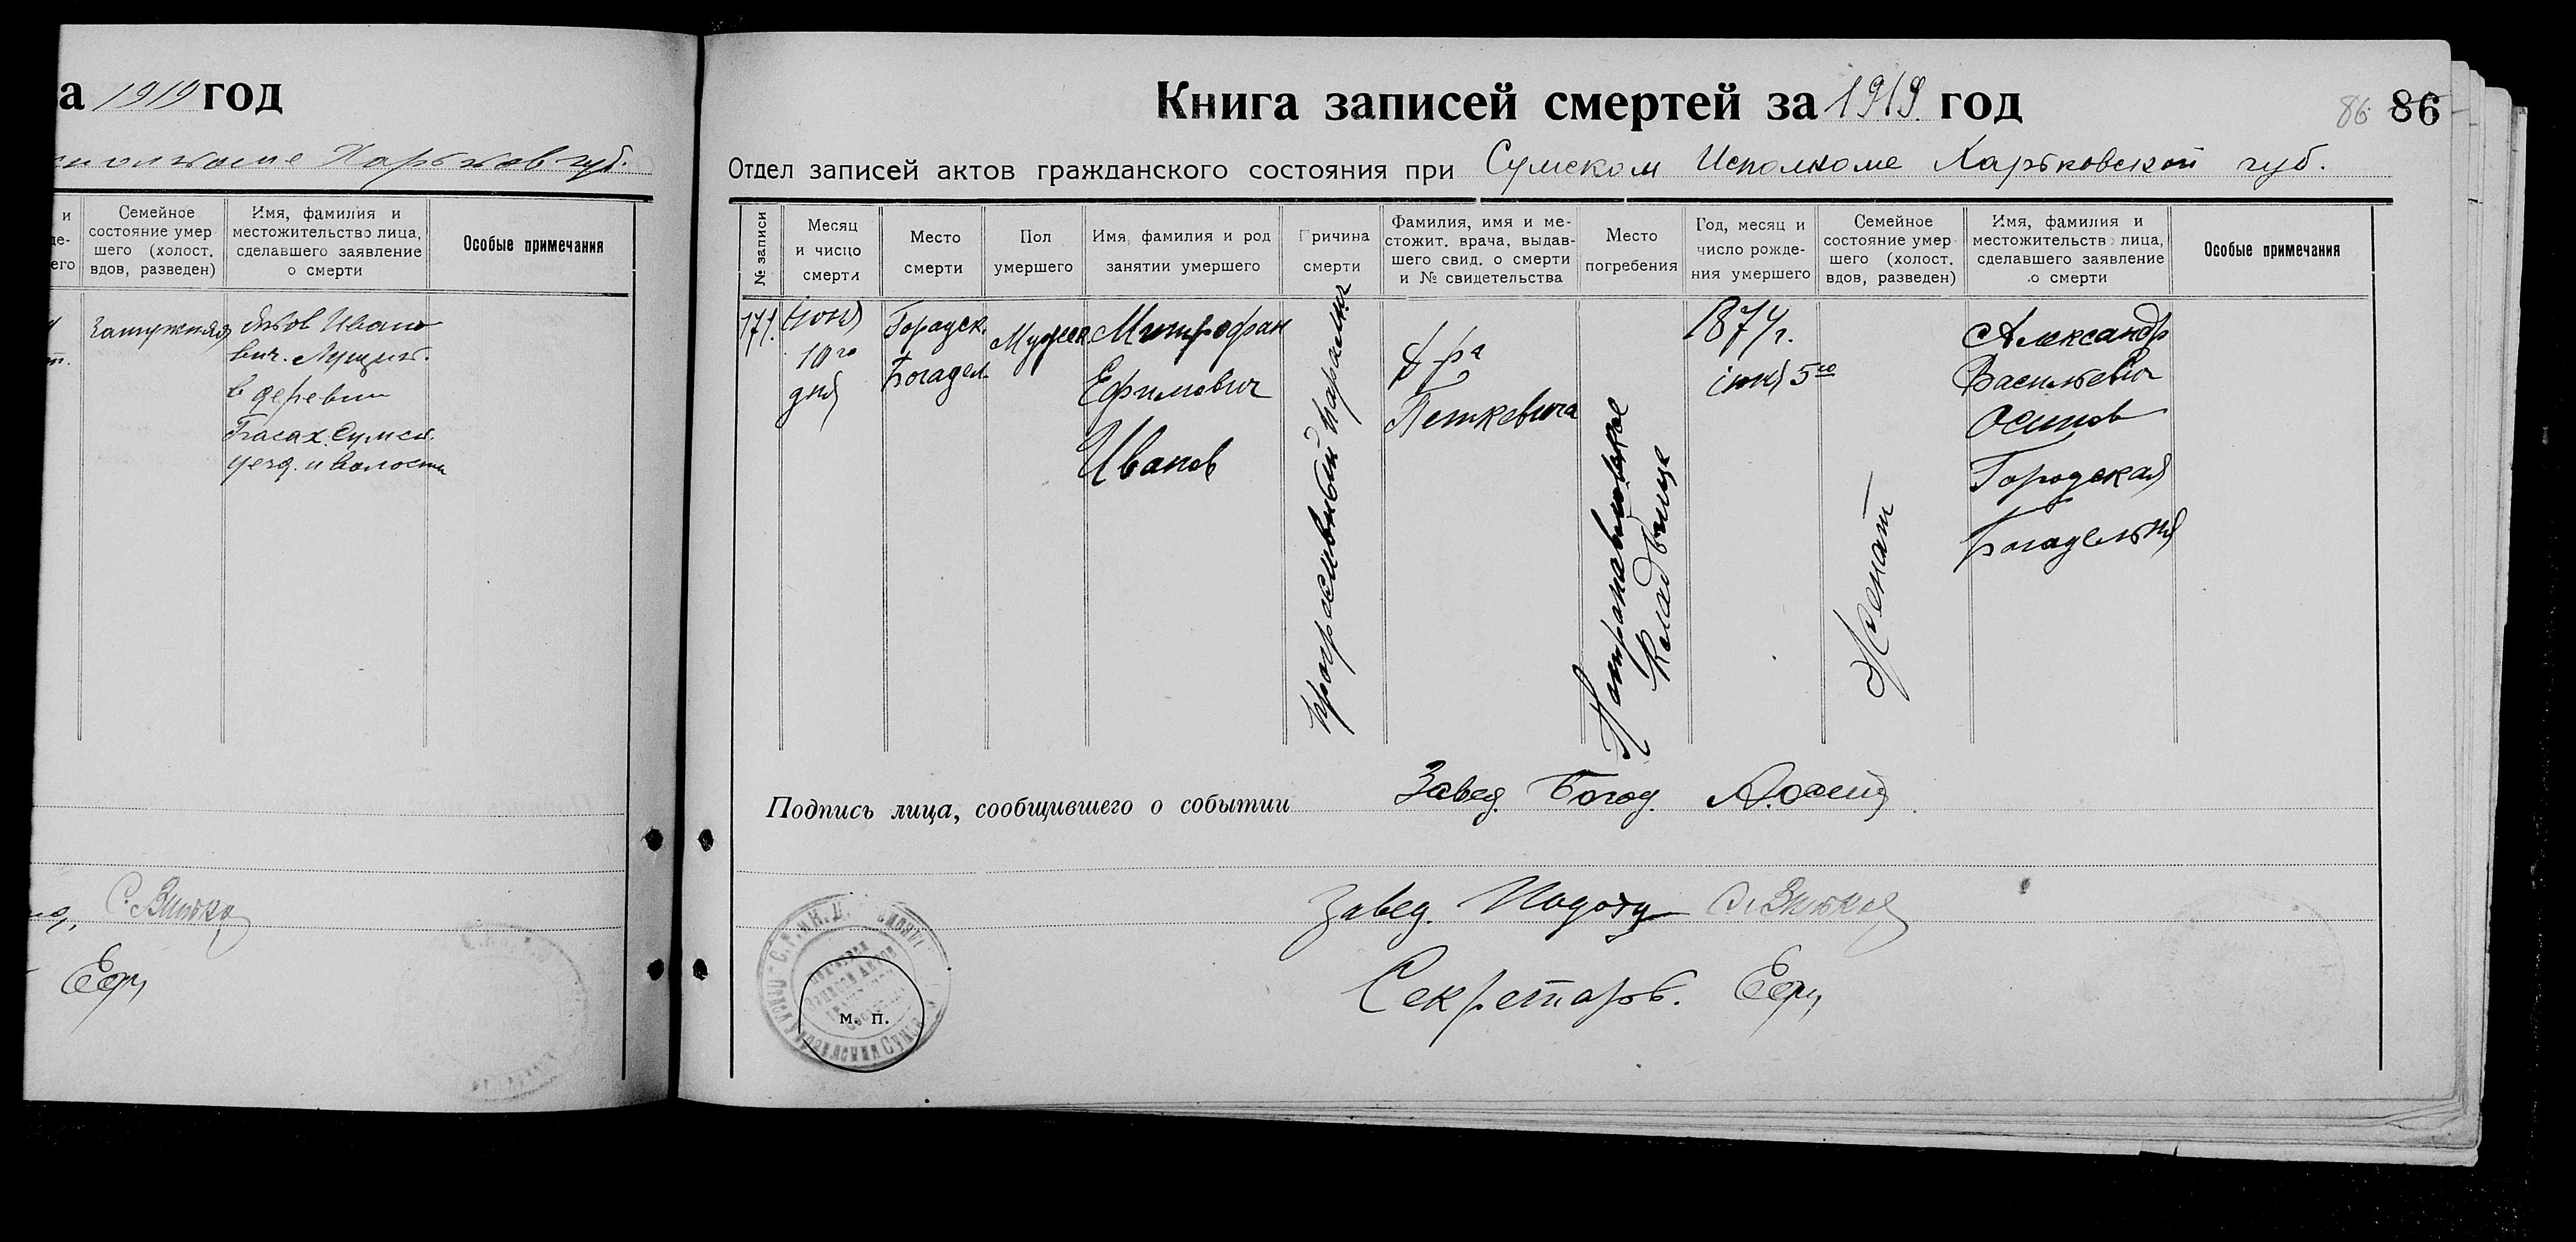 а 1919 год
Харьков губ.
и
Семейное
состояние умер
шего (холост.
вдов, разведен)
Имя, фамилия и
местожительство лица,
сделавшего заявление
о смерти
Особые примечания
Замужняя
Яков Ивано
вич.
в деревни
Басах. Сумск.
уезд. и волости
Книга записей смертей за 1919. год
86 86
Отдел записей актов гражданского состояния при Сумском Исполкоме Харьковской губ.
№ записи
Месяц
и число
смерти
Место
смерти
Пол
умершего
Имя, фамилия и род
занятии умершего
Причина
смерти
Фамилия, имя и ме-
стожит. врача, выдав-
шего свид. о смерти
и № свидетельства
Место
погребения
Год, месяц и
число рожде-
ния умершего
Семейное
состояние умер
шего (холост.
вдов, разведен)
Имя, фамилия и
местожительство лица,
сделавшего заявление
о смерти
Особые примечания
171.
Июня
10го
дня
Городск.
Богадел.
Мужск.
Митрофан
Ефимович
Иванов
прогрессивный паралич
Д-ра
Петкевича
Петропавловское
Кладбище
1874 г.
июня 5го
Женат
Александр
Васильевич
Осипов
Городская
Богадельня
Подпись лица, сообщившего о событии Завед. Богод. А. Осип
Завед. Подотд
Секретарь.
М. П.